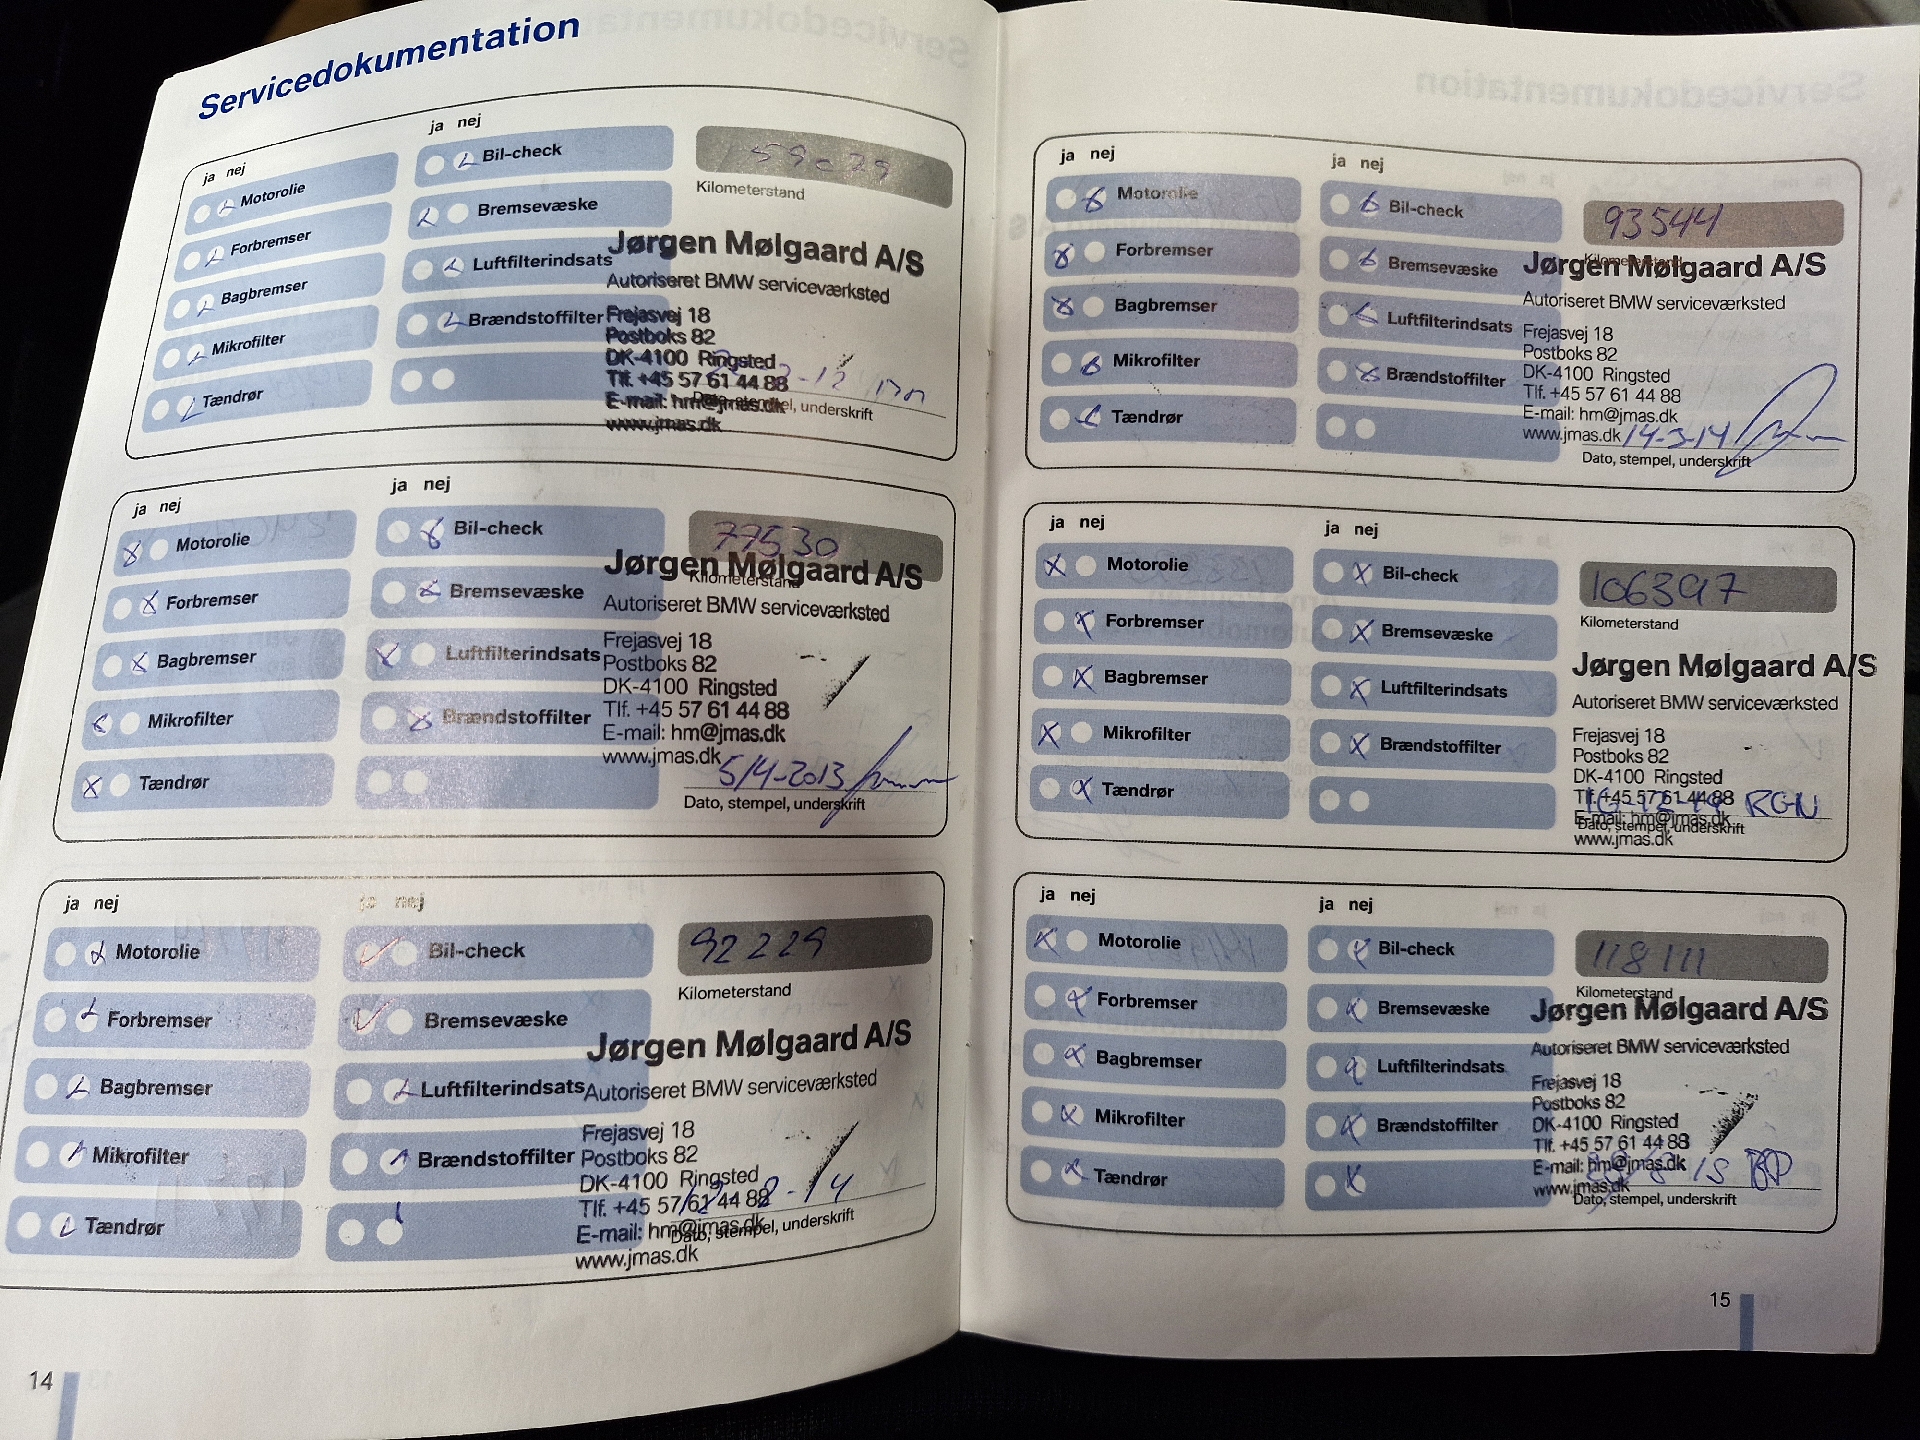 Servicedokumentation
ja nej
Motorolie
Forbremser
Bagbremser
Mikrofilter
Tændrør
ja nej
Bil-check
Bremsevæske
Luftfilterindsats
Brændstoffilter
Kilometerstand
Jørgen Mølgaard A/S
Autoriseret BMW serviceværksted
Frejasvej 18
Postboks 82
DK-4100 Ringsted
Tlf. +45 57 61 44 88
E-mail: hm@jmas.dk
www.jmas.dk
Dato, stempel, underskrift
ja nej
Motorolie
Forbremser
Bagbremser
Mikrofilter
Tændrør
ja nej
Bil-check
Bremsevæske
Luftfilterindsats
Brændstoffilter
77530
Kilometerstand
Jørgen Mølgaard A/S
Autoriseret BMW serviceværksted
Frejasvej 18
Postboks 82
DK-4100 Ringsted
Tlf. +45 57 61 44 88
E-mail: hm@jmas.dk
www.jmas.dk
5/4-2013
Dato, stempel, underskrift
ja nej
Motorolie
Forbremser
Bagbremser
Mikrofilter
Tændrør
ja nej
Bil-check
Bremsevæske
Luftfilterindsats
Brændstoffilter
92229
Kilometerstand
Jørgen Mølgaard A/S
Autoriseret BMW serviceværksted
Frejasvej 18
Postboks 82
DK-4100 Ringsted
Tlf. +45 57 61 44 88
E-mail: hm@jmas.dk
www.jmas.dk
Dato, stempel, underskrift
14
ja nej
Motorolie
Forbremser
Bagbremser
Mikrofilter
Tændrør
ja nej
Bil-check
Bremsevæske
Luftfilterindsats
Brændstoffilter
93544
Kilometerstand
Jørgen Mølgaard A/S
Autoriseret BMW serviceværksted
Frejasvej 18
Postboks 82
DK-4100 Ringsted
Tlf. +45 57 61 44 88
E-mail: hm@jmas.dk
www.jmas.dk 14-3-14
Dato, stempel, underskrift
ja nej
Motorolie
Forbremser
Bagbremser
Mikrofilter
Tændrør
ja nej
Bil-check
Bremsevæske
Luftfilterindsats
Brændstoffilter
106397
Kilometerstand
Jørgen Mølgaard A/S
Autoriseret BMW serviceværksted
Frejasvej 18
Postboks 82
DK-4100 Ringsted
Tlf. +45 57 61 44 88
RGN
E-mail: hm@jmas.dk
Dato, stempel, underskrift
www.jmas.dk
ja nej
Motorolie
Forbremser
Bagbremser
Mikrofilter
Tændrør
ja nej
Bil-check
Bremsevæske
Luftfilterindsats
Brændstoffilter
118111
Kilometerstand
Jørgen Mølgaard A/S
Autoriseret BMW serviceværksted
Frejasvej 18
Postboks 82
DK-4100 Ringsted
Tlf. +45 57 61 44 88
E-mail: hm@jmas.dk
www.jmas.dk
Dato, stempel, underskrift
15